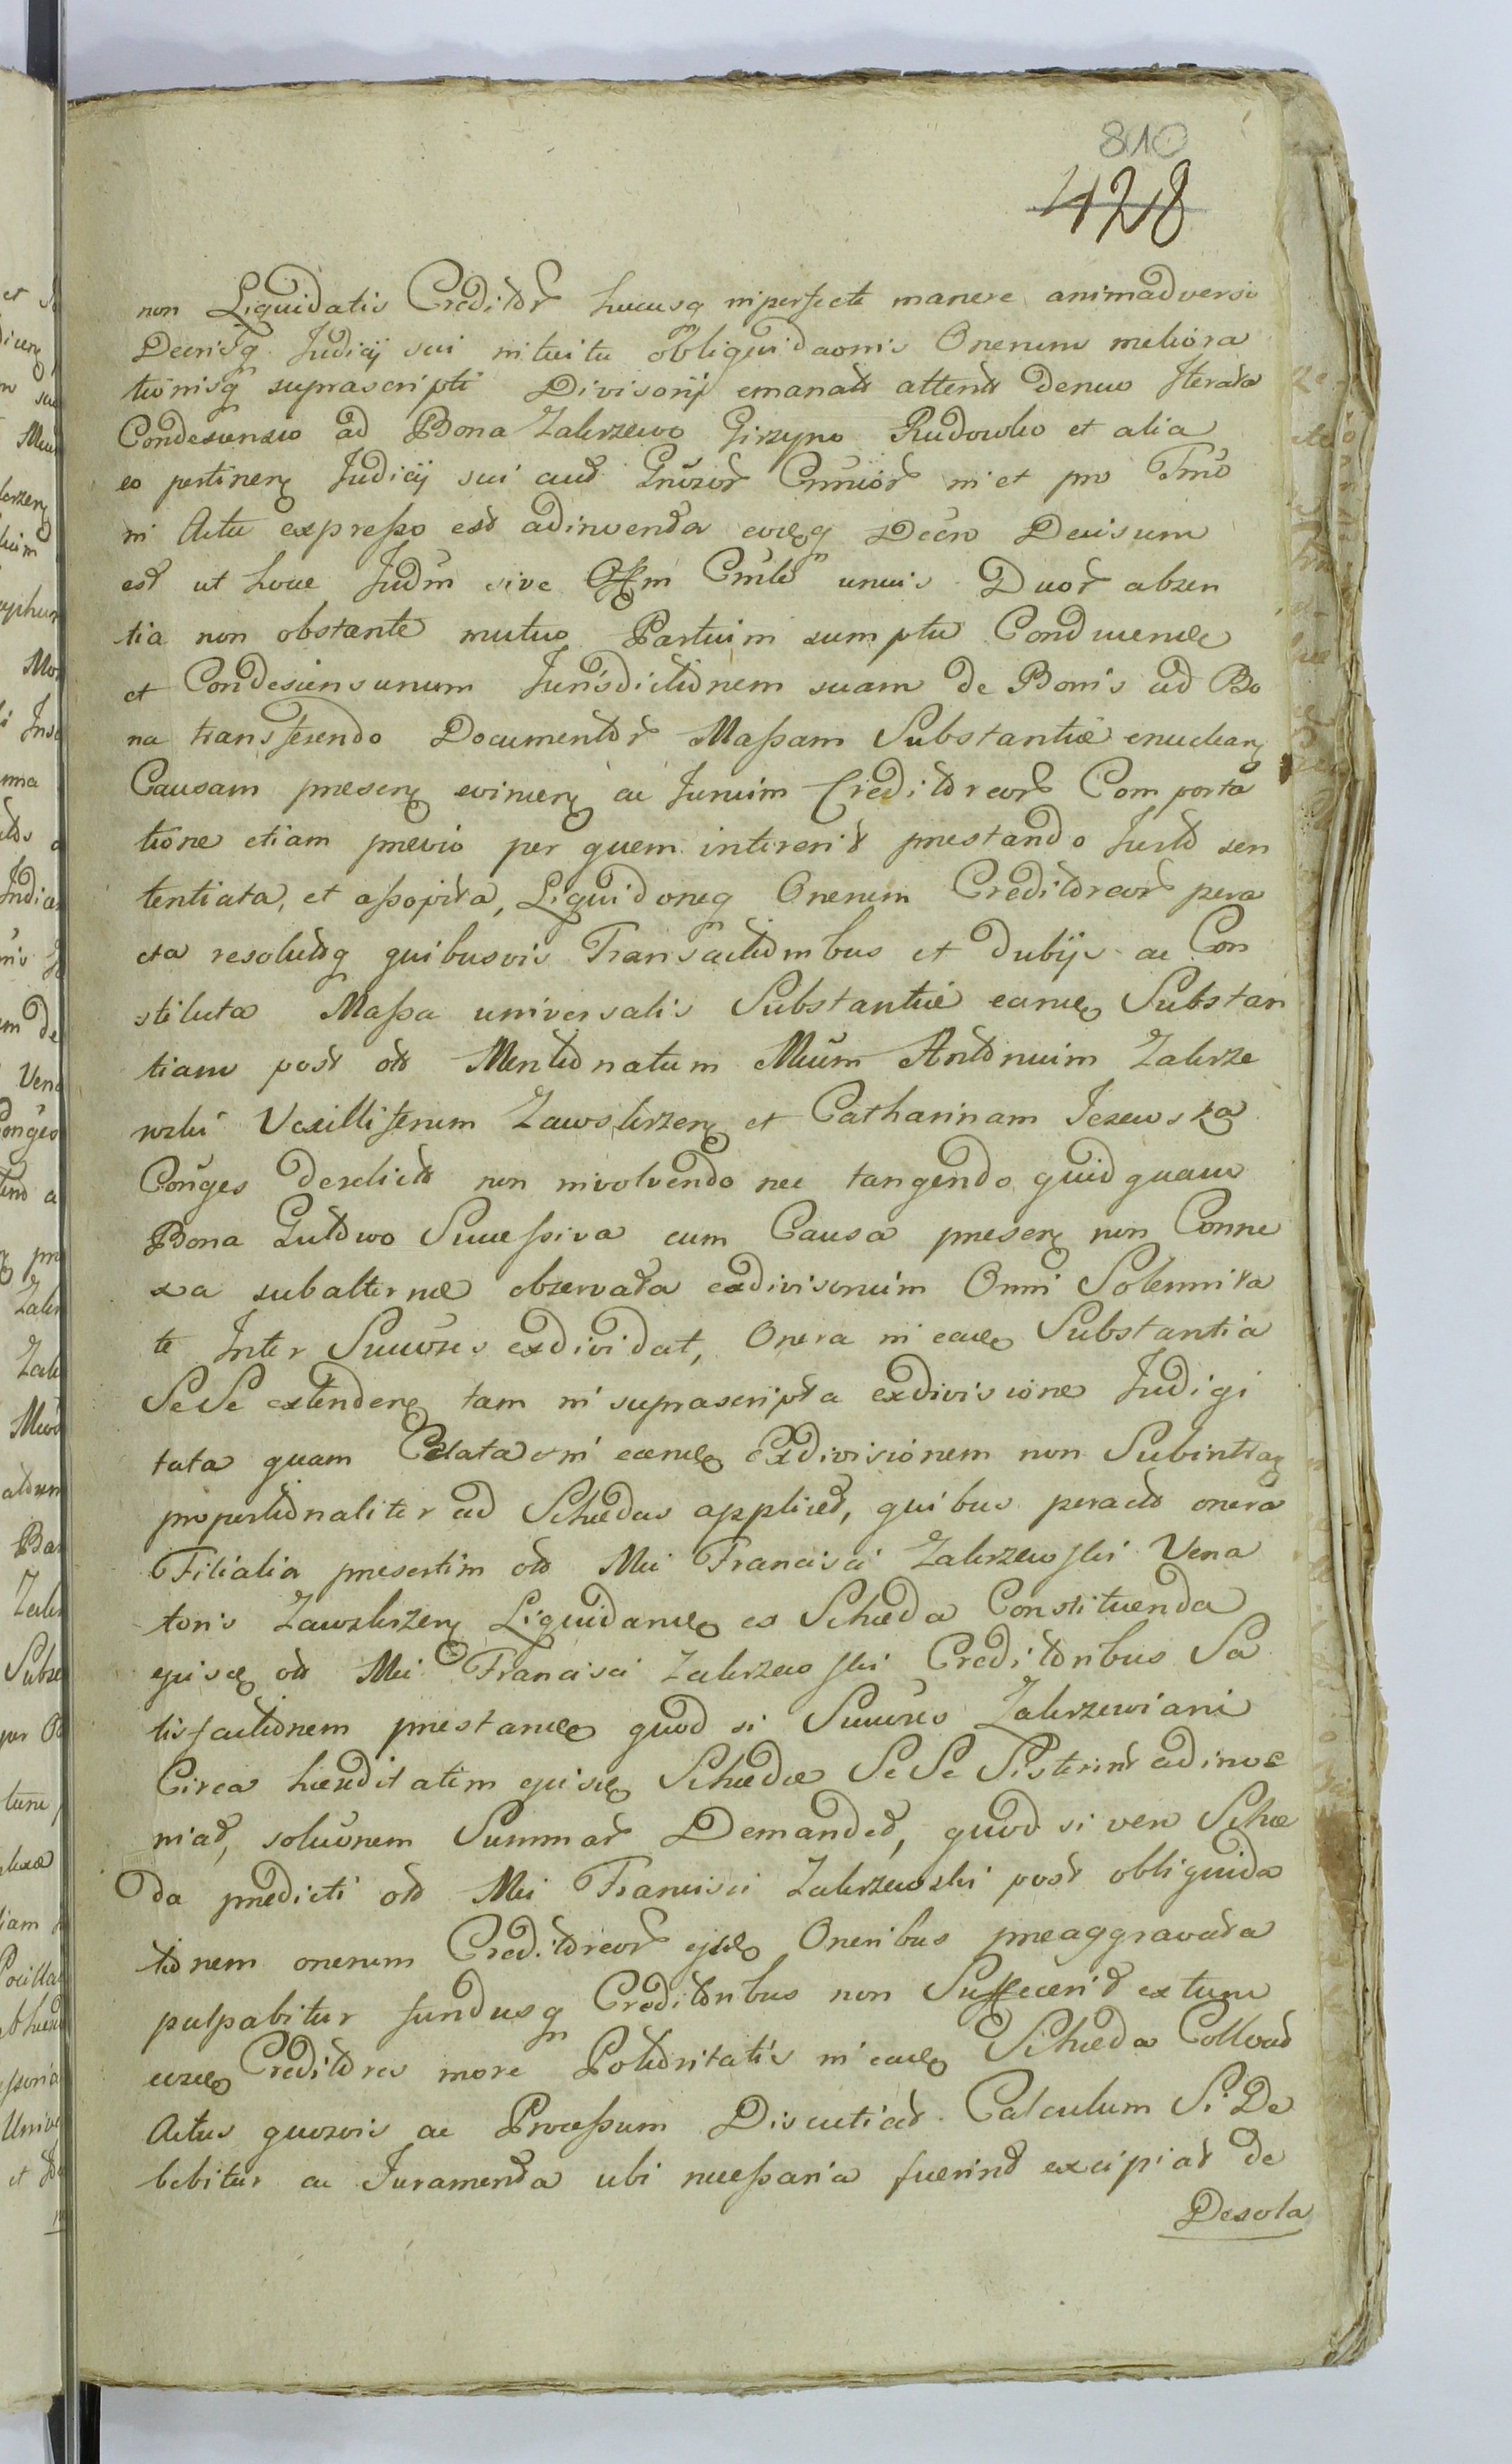 810
428
non Liquidatis Creditor hucusq imperfecte manere animadverso
Decrisq Judicij sui intuitu obliquidaonis Onerum meliora
tionisq suprascripti Divisorij emanato attento denuo Iterata
Condescensio ad Bona Zakrzewo Girzyno Rudowko et alia
eo pertinen Judicij sui aud Gruzor Cmnior in et pro Tmo
in Actu expresso est adinventa eoq Decro Decisum
est ut hocce Judm sive Offm Cmle unius Duor absen
tia non obstante mutuo Partium sumptu Conducende
et Condescensurum Jurisdictionem suam de Bonis ad Bo
na transferendo Documentor Massam Substantiæ enuclean
Causam presen evincen ac Jurium Creditoreor Comporta
tione etiam previo per quem intererit prestando Jurto sen
tentiata, et assopita, Liquidoneq Onerum Creditoreor pera
cta resolutisq quibusvis Transactionibus et dubijs ac Con
stituta Massa universalis Substantiæ eande Substan
tiam post olo Mentionatum Mcum Antonium Zakrze
wski Vexilliferum Zawskrzen et Catharinam Jezewska
Conges derelicto non involvendo nec tangendo quidquam
Bona Gutowo Successiva cum Causa presen non Conne
xa subalterne observata exdivisorium Omni Solennita
te Inter Succores exdividat, Onera in eade Substantia
Se Se extenden tam in suprascripta exdivisione Judigi
tata quam Celata in eande Exdivisionem non Subintran
proportionaliter ad Schedas applicet, quibus peracto onera
Filialia presertim olo Mci Francisci Zakrzewski Vena
toris Zawskrzen Liquidande ex Scheda Constituenda
ejusde olo Mci Francisci Zakrzewski Creditoribus Sa
tisfactionem prestande quod si Succores Zakrzewiani
Circa hæreditatem ejusde Schedæ Se Se Sisterint adinve
niat, soluonem Summar Demandet, quod si vero Sche
da predicti olo Mci Francisci Zakrzewski post obliquida
tionem onerum Creditoreor ejusde Oneribus preaggravata
palpabitur fundusq Creditoribus non Suffecerit extunc
eosde Creditores more Potioritatis in eade Scheda Collocet
Actus quosvis ac Processum Discutiat Calculum Si De
bebitur ac Juramenta ubi necessaria fuerint excipiat de
Desola